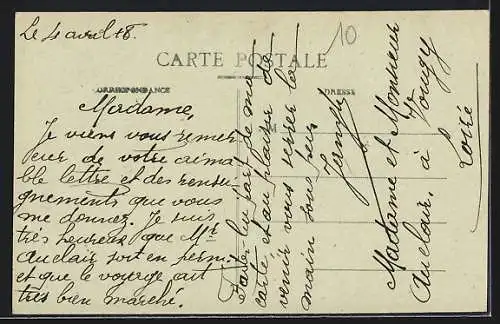 Le 4 avril 18.
10
CARTE POSTALE
CORRESPONDANCE
ADRESSE
Madame,
Je viens vous remer
cier de votre aima
ble lettre et des rensei
gnements que vous
me donnez. Je suis
très heureux que Mr
Auclair soit en permi
et que le voyage ait
très bien marché.
Faites lui part de ma
carte, et au plaisir de
venir vous serrer la
main tous les
Madame et Monsieur
Auclair, à Vougy
Loire